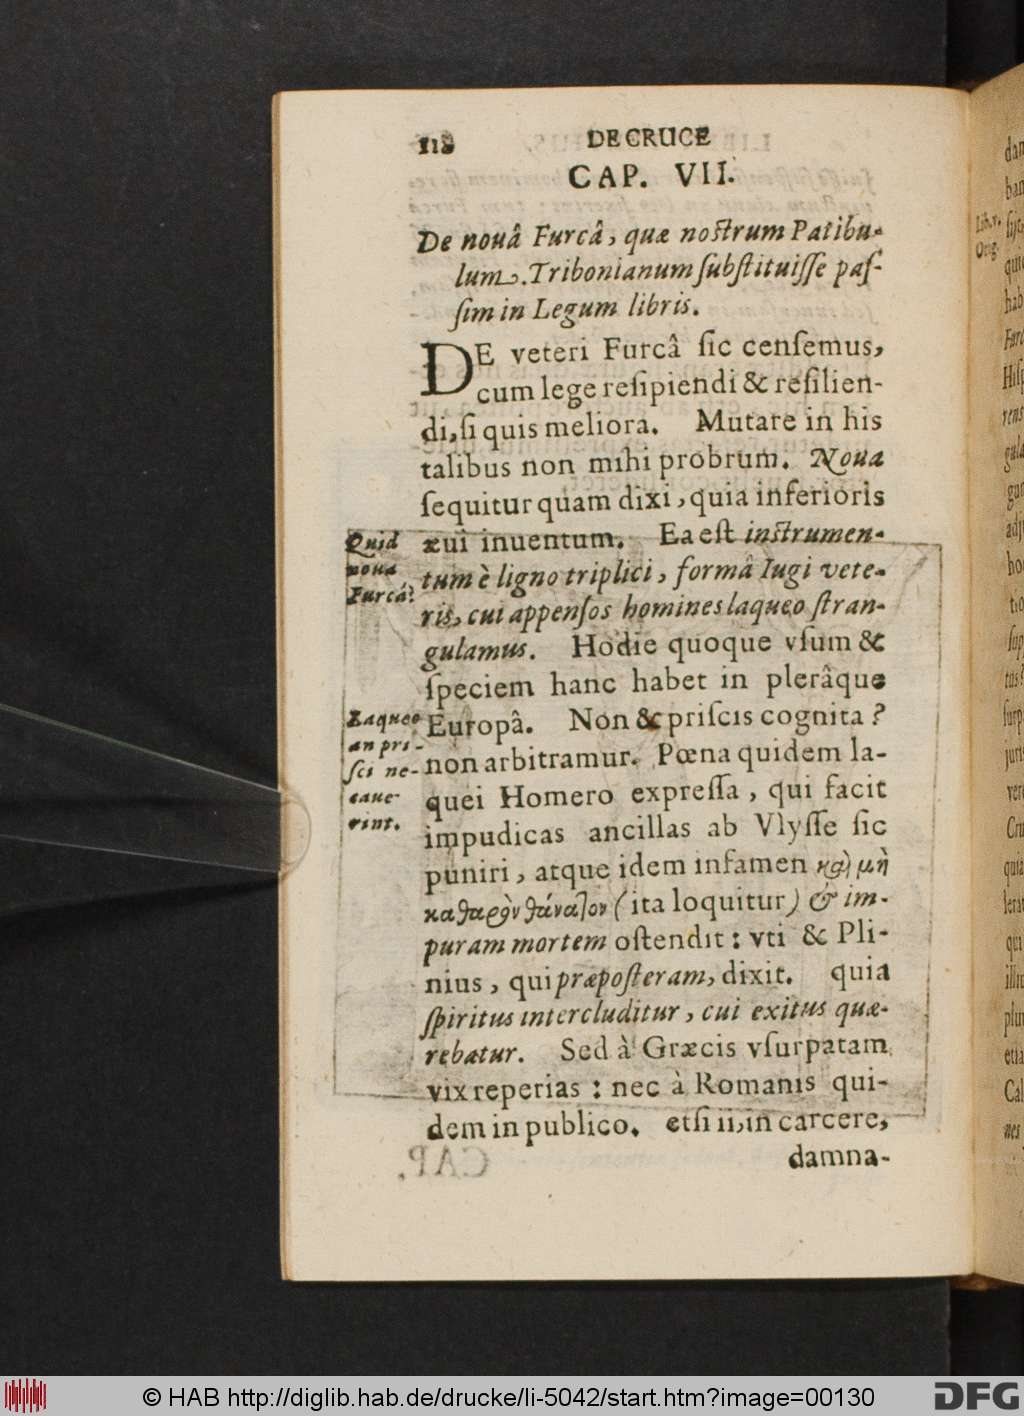 118 DE CRUCE
CAP. VII.
De nouâ Furcâ, quæ nostrum Patibu-
lum. Tribonianum ſubſtituiſſe paſ-
ſim in Legum libris.
DE veteri Furcâ ſic cenſemus,
cum lege reſipiendi & reſilien-
di, ſi quis meliora. Mutare in his
talibus non mihi probrum. Noua
ſequitur quam dixi, quia inferioris
æui inuentum. Ea est instrumen-
tum è ligno triplici, formâ Iugi vete-
ris, cui appenſos homines laqueo ſtran-
gulamus. Hodie quoque vſum &
ſpeciem hanc habet in plerâque
Europâ. Non & priſcis cognita?
non arbitramur. Pœna quidem la-
quei Homero expreſſa, qui facit
impudicas ancillas ab Vlyſſe ſic
puniri, atque idem infamen καὶ μὴ
καθαρὸν θάνατον (ita loquitur) & im-
puram mortem oſtendit: vti & Pli-
nius, qui præpoſteram, dixit. quia
ſpiritus intercluditur, cui exitus quæ-
rebatur. Sed à Græcis vſurpatam
vix reperias: nec à Romanis qui-
dem in publico. etſi ii, in carcere,
damna-
Quid
noua
Furca?
Laqueo
an pri-
ſci ne-
caue-
rint.
Lib. v.
Orig.
© HAB http://diglib.hab.de/drucke/li-5042/start.htm?image=00130
DFG